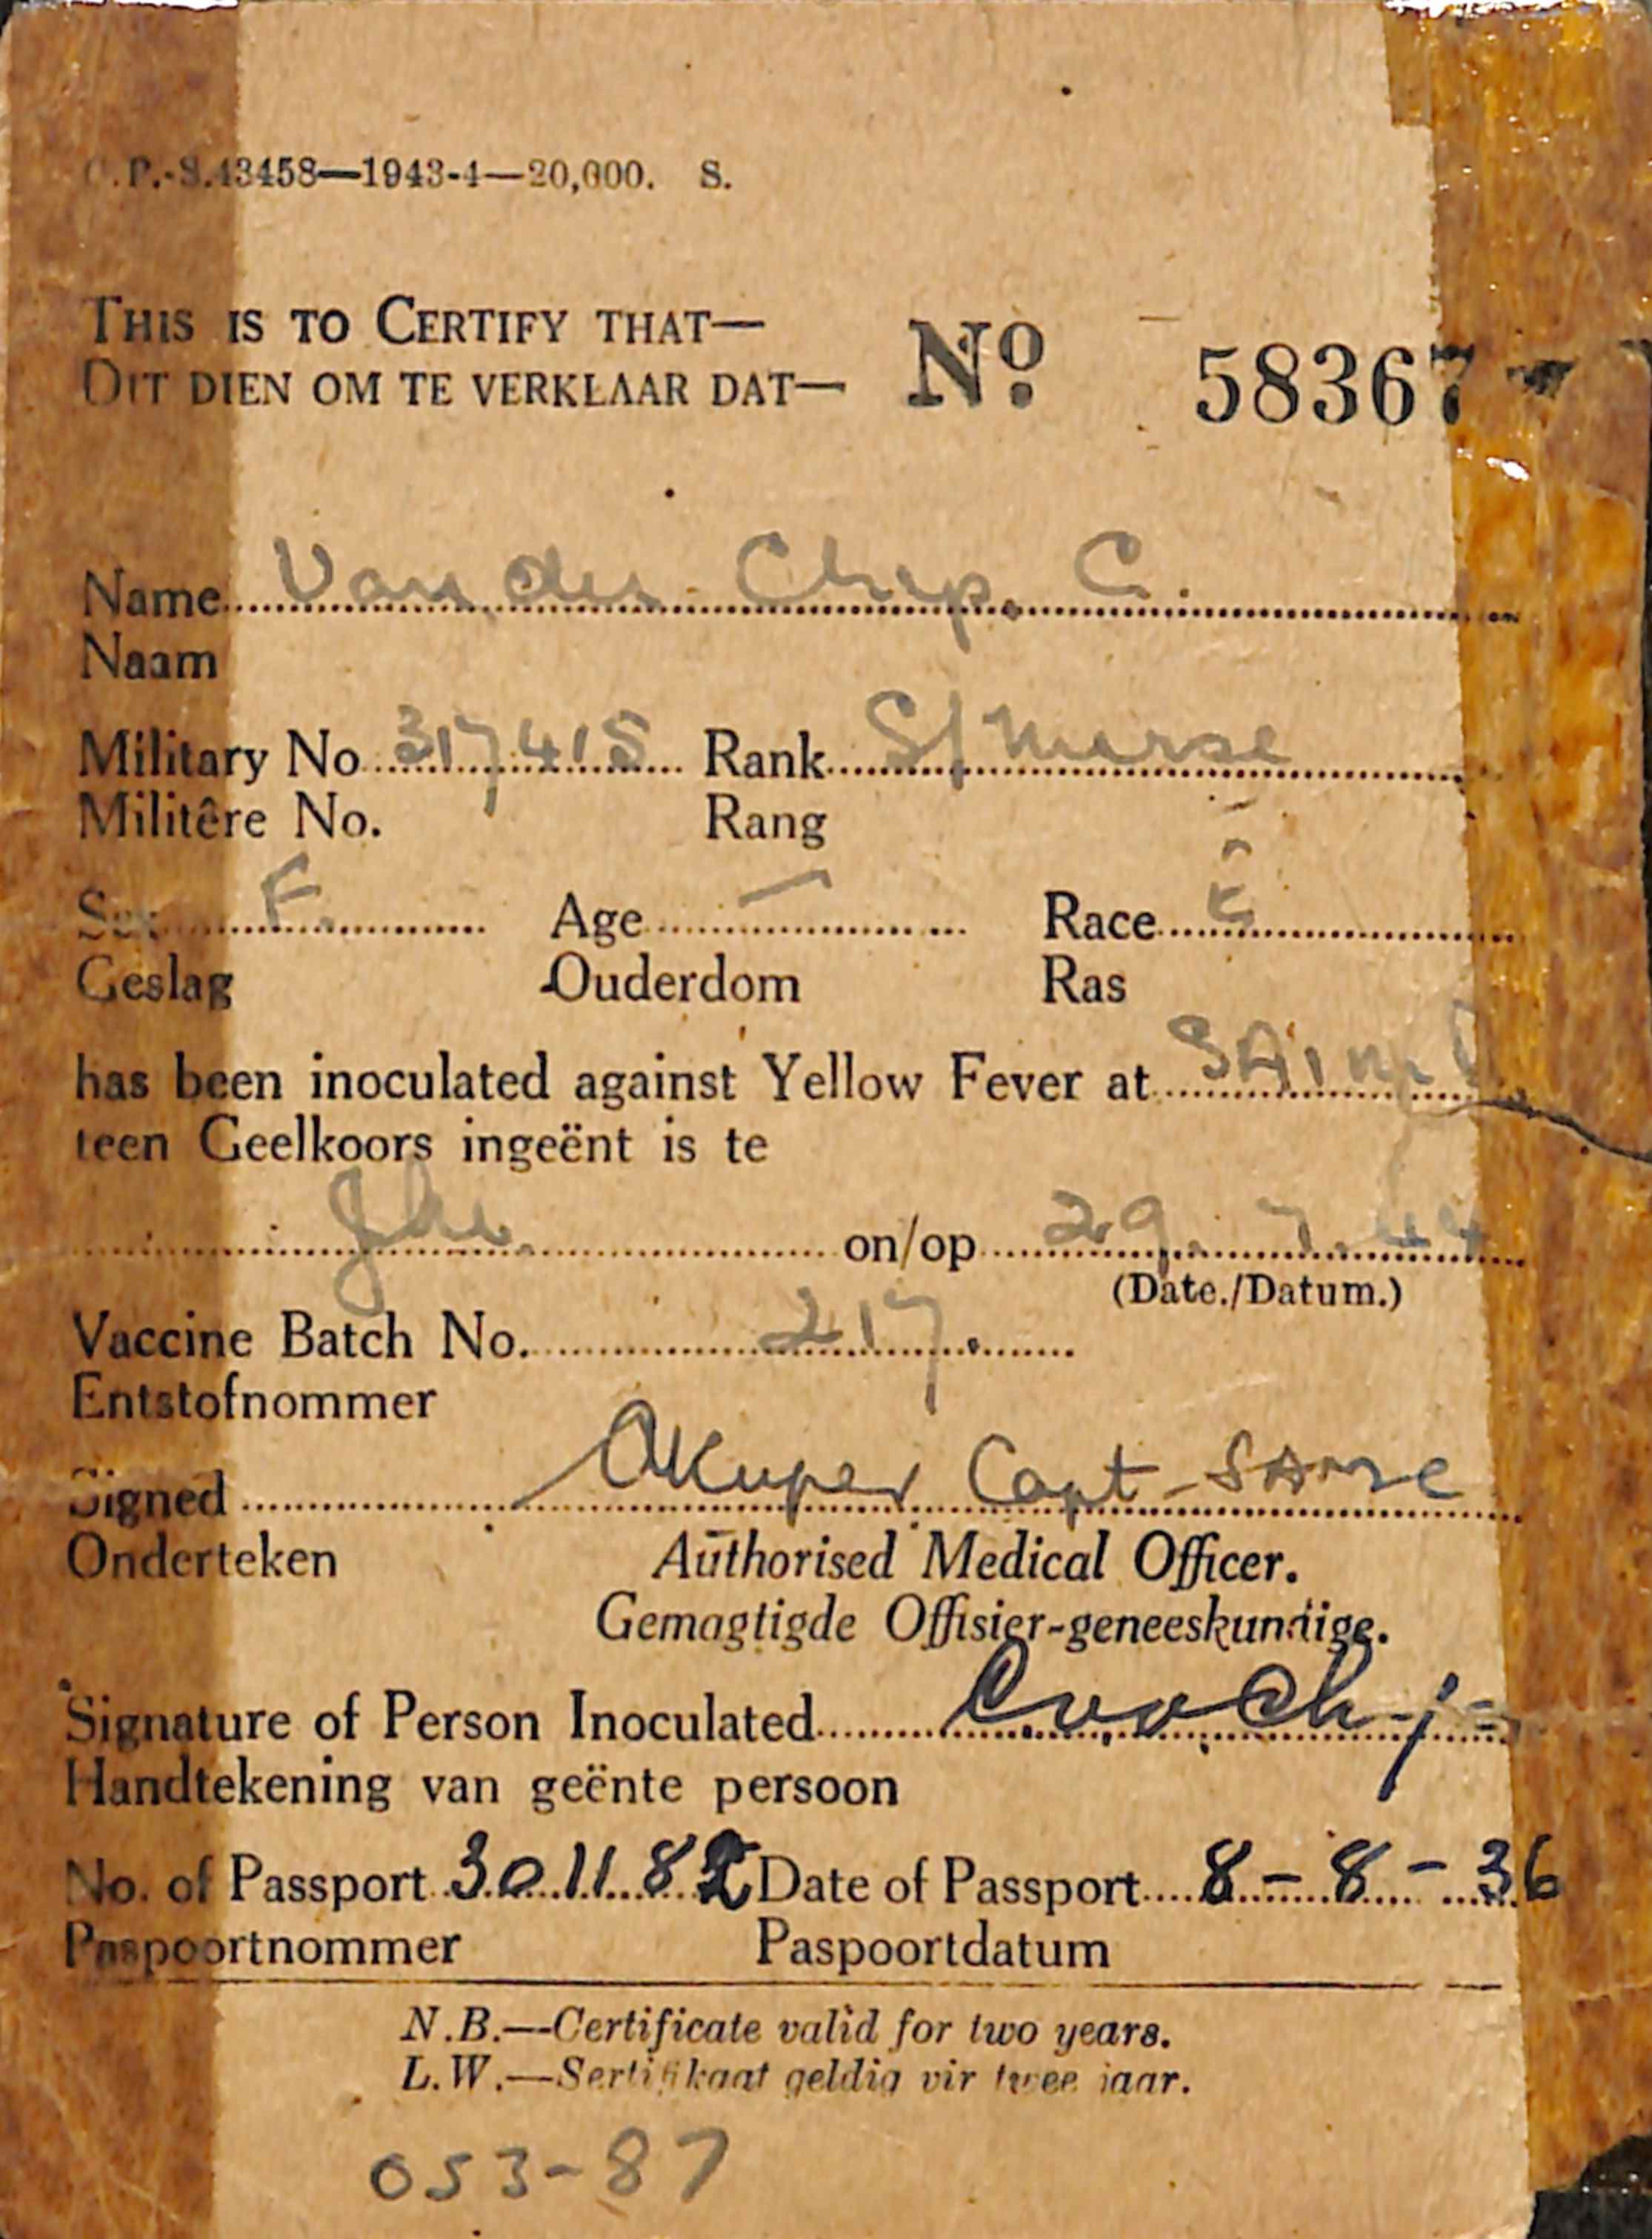 G.P.-S.43458—1943-4—20,000. S.
THIS IS TO CERTIFY THAT—
DIT DIEN OM TE VERKLAAR DAT—
Nº 58367
Name Van der Chijs, C.
Naam
Military No 317415 Rank S/Nurse
Militêre No. Rang
Sex F. Age — Race E
Geslag Ouderdom Ras
has been inoculated against Yellow Fever at SAIMR
teen Geelkoors ingeënt is te
Jhb. on/op 29.7.44
(Date./Datum.)
Vaccine Batch No. 217.
Entstofnommer
Signed Kuper Capt-SAMC
Onderteken Authorised Medical Officer.
Gemagtigde Offisier-geneeskundige.
Signature of Person Inoculated
Handtekening van geënte persoon
No. of Passport 301182 Date of Passport 8-8-36
Paspoortnommer Paspoortdatum
N.B.—Certificate valid for two years.
L.W.—Sertifikaat geldig vir twee jaar.
053-87